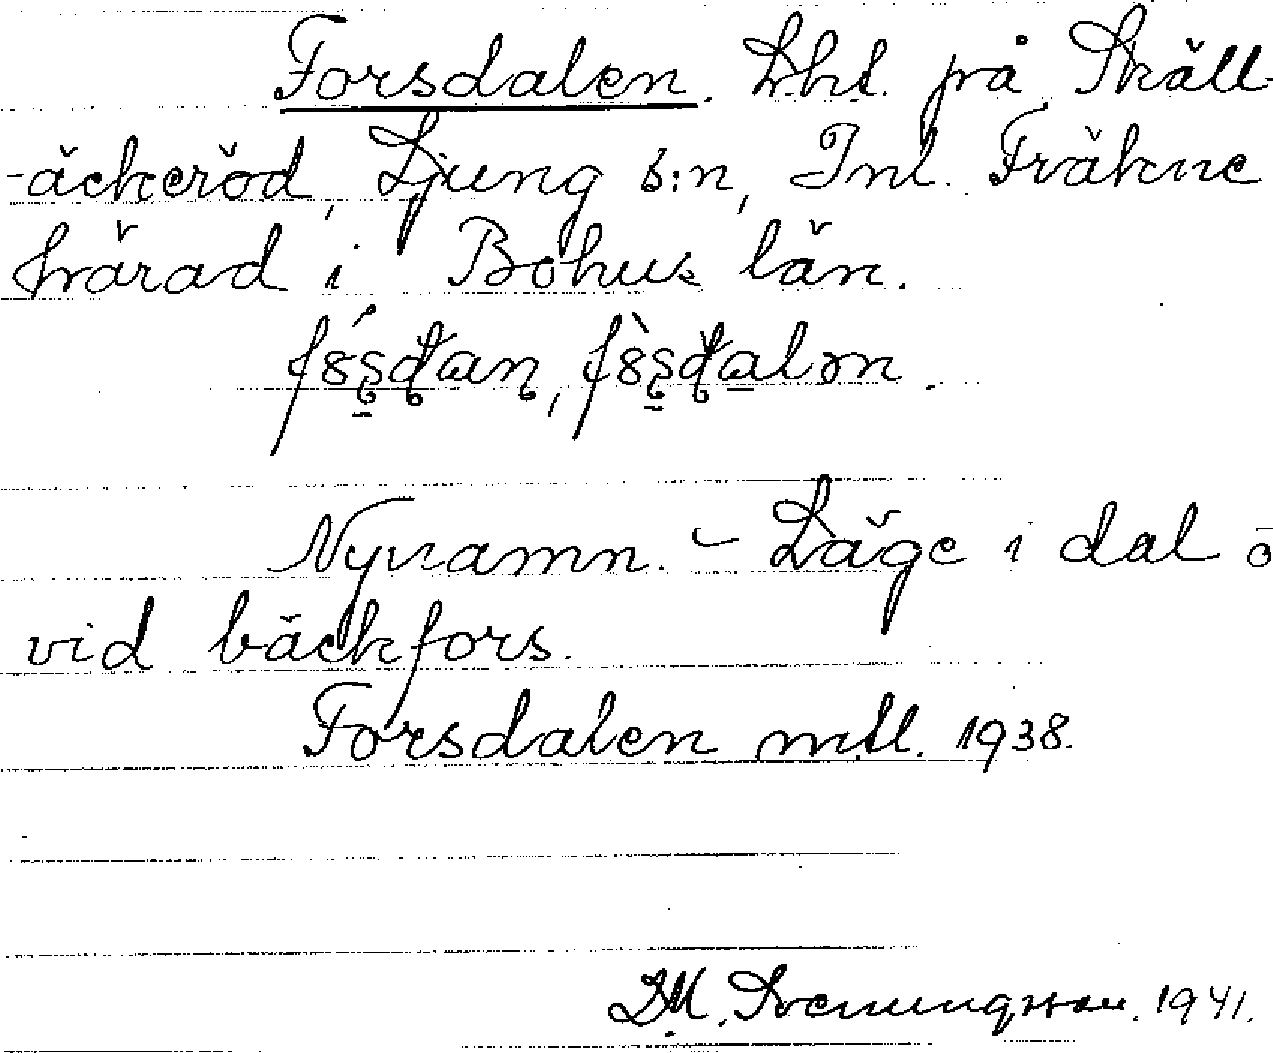 Forsdalen. Lht. på Skäll-
-äckeröd, Ljung s:n, Inl. Fräkne
härad i Bohus län.
Nynamn. - Läge i dal o
vid bäckfors.
Forsdalen mtl. 1938.
D.M. Svenungsson. 1941.